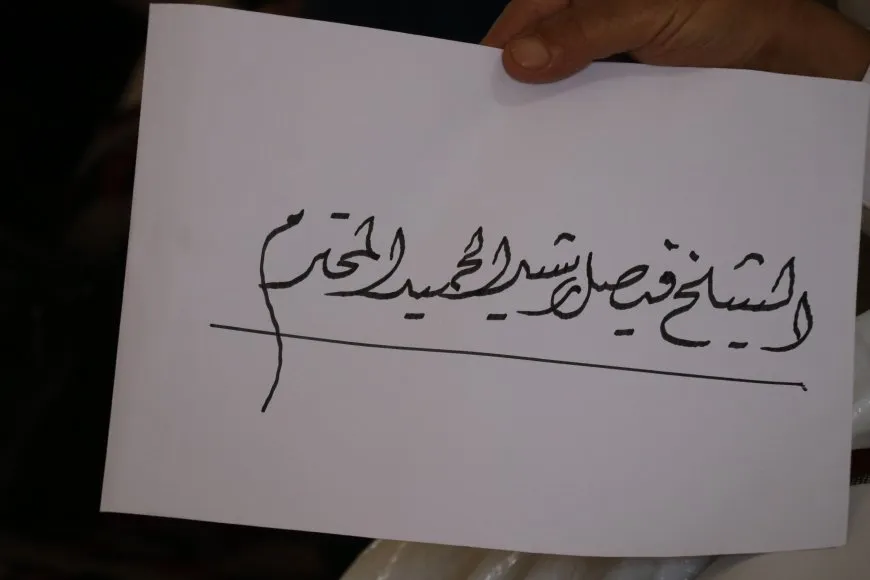 الشيخ فيصل رشيد الحميد المحترم